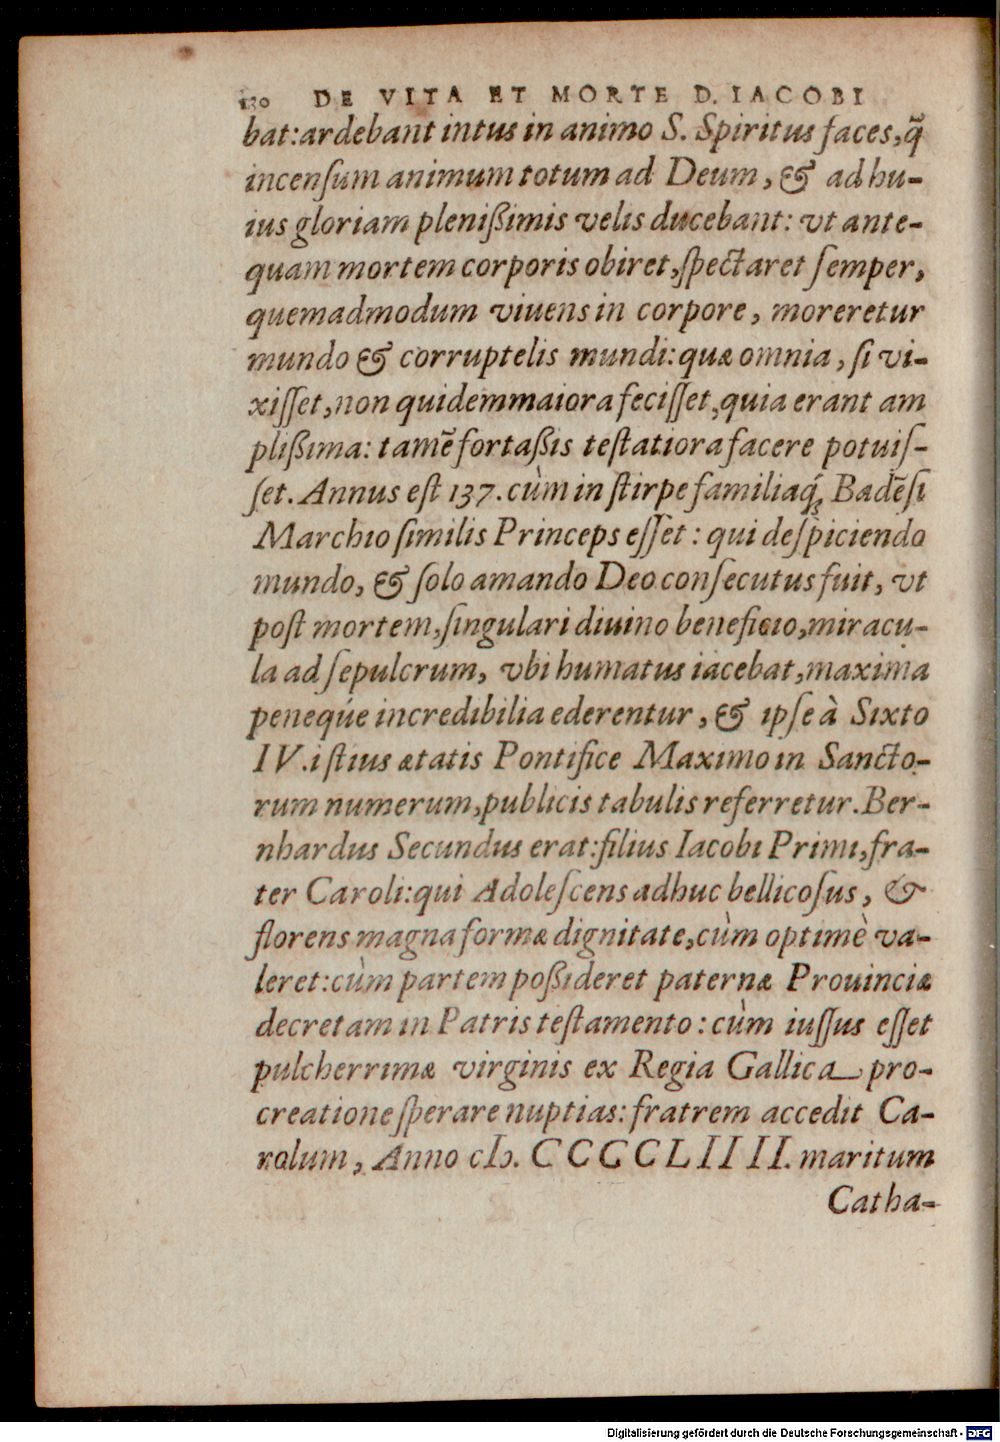 130 DE VITA ET MORTE D. IACOBI
bat: ardebant intus in animo S. Spiritus faces, q̃
incenſum animum totum ad Deum, & ad hu-
ius gloriam pleniſsimis velis ducebant: vt ante-
quam mortem corporis obiret, ſpectaret ſemper,
quemadmodum viuens in corpore, moreretur
mundo & corruptelis mundi: quæ omnia, ſi vi-
xiſſet, non quidem maiora feciſſet, quia erant am
pliſsima: tamẽ fortaſsis teſtatiora facere potuiſ-
ſet. Annus eſt 137. cùm in ſtirpe familiaq́; Badẽſi
Marchio ſimilis Princeps eſſet: qui deſpiciendo
mundo, & ſolo amando Deo conſecutus fuit, vt
poſt mortem, ſingulari diuino beneficio, miracu-
la ad ſepulcrum, vbi humatus iacebat, maxima
peneq́ue incredibilia ederentur, & ipſe à Sixto
IV. iſtius ætatis Pontifice Maximo in Sancto-
rum numerum, publicis tabulis referretur. Ber-
nhardus Secundus erat: filius Iacobi Primi, fra-
ter Caroli: qui Adoleſcens adhuc bellicoſus, &
florens magna formæ dignitate, cùm optimè va-
leret: cùm partem poſsideret paternæ Prouinciæ
decretam in Patris teſtamento: cùm iuſſus eſſet
pulcherrimæ virginis ex Regia Gallica pro-
creatione ſperare nuptias: fratrem accedit Ca-
rolum, Anno cIↄ. CCCCLIIII. maritum
Catha-
Digitalisierung gefördert durch die Deutsche Forschungsgemeinschaft - DFG